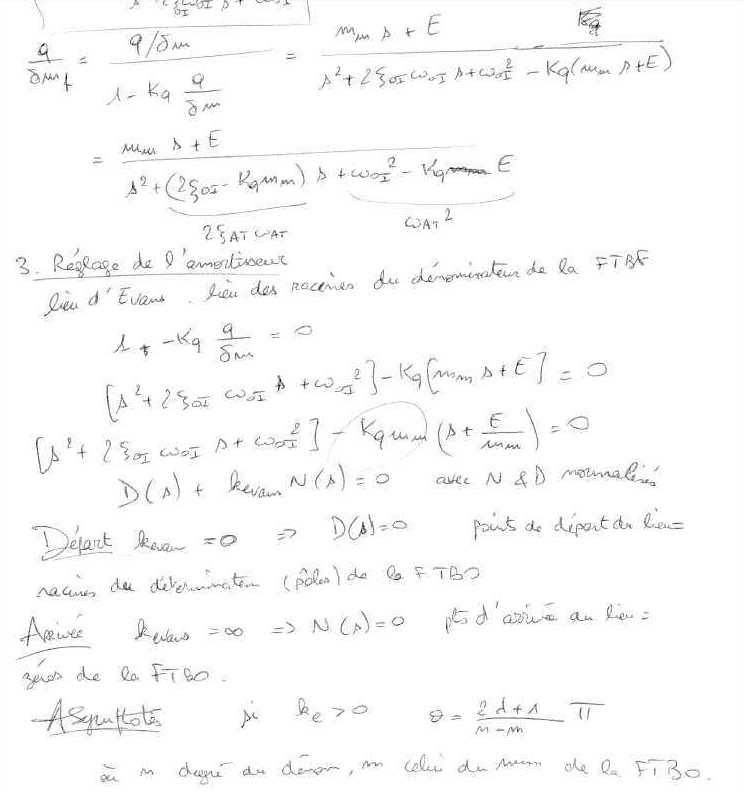 q/δm_f = (q/δm) / (1 - Kq q/δm) = (m_m s + E) / (s² + 2ξ_OI ω_OI s + ω_OI² - Kq(m_m s + E))
= (m_m s + E) / (s² + (2ξ_OI - Kq m_m) s + ω_OI² - Kq E)
2ξ_AT ω_AT ω_AT²
3. Réglage de l'amortisseur
lieu d'Evans . lieu des racines du dénominateur de la FTBF
1 - Kq q/δm = 0
[s² + 2ξ_OI ω_OI s + ω_OI²] - Kq[m_m s + E] = 0
[s² + 2ξ_OI ω_OI s + ω_OI²] - Kq m_m (s + E/m_m) = 0
D(s) + kevans N(s) = 0 avec N & D normalisés
Départ kevan = 0 => D(s) = 0 points de départ du lieu =
racines du déterminateur (pôles) de la FTBO
Arrivée kevans = ∞ => N(s) = 0 pts d'arrivée au lieu =
zéros de la FTBO.
Asymptotes si ke > 0 θ = (2d+1)/(n-m) π
où n degré du dénom, m celui du num de la FTBO.